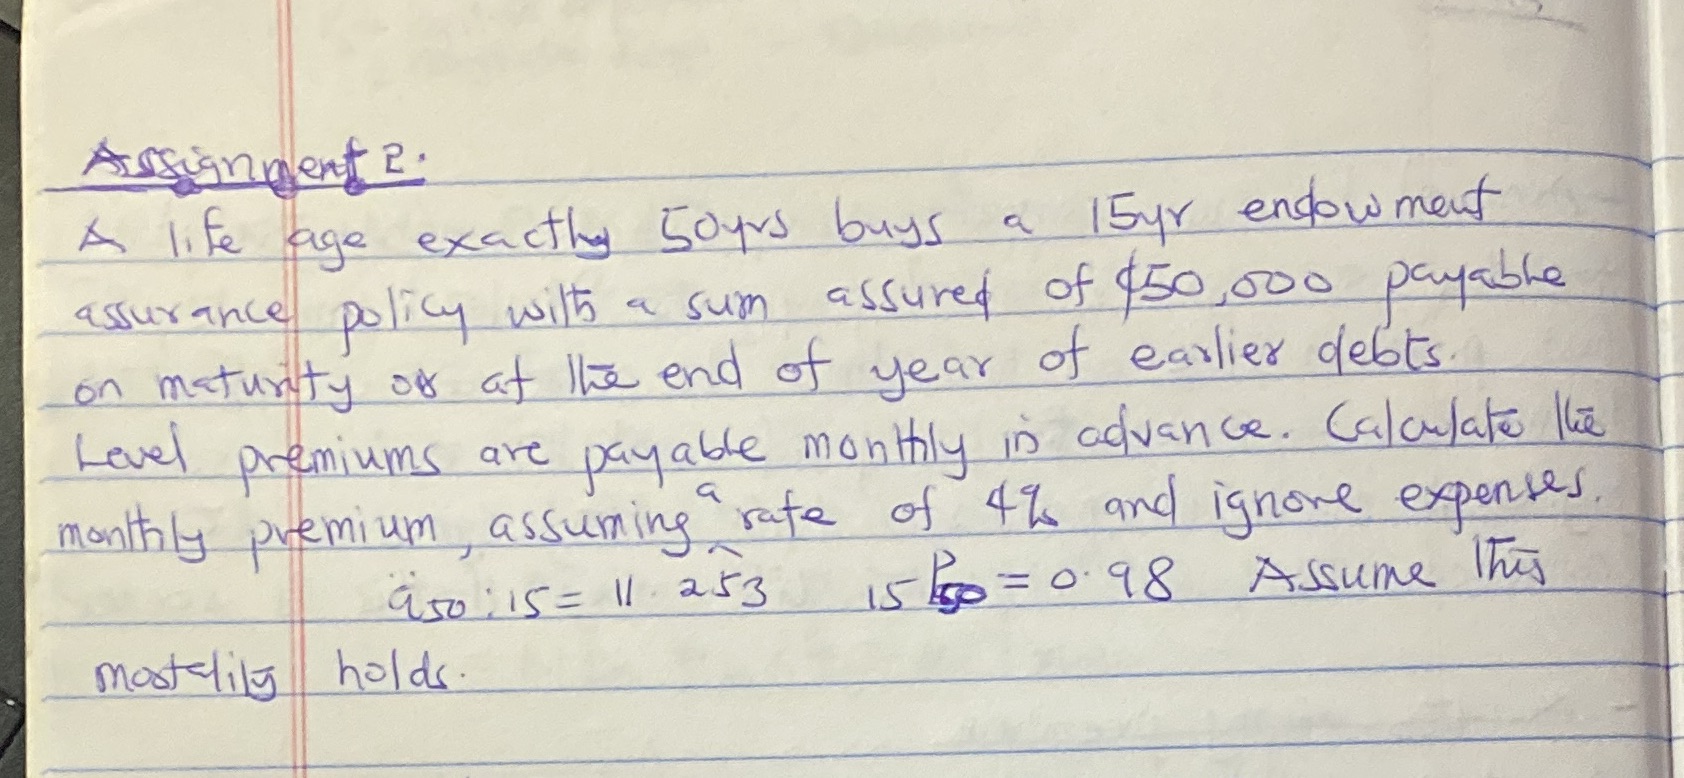 Assignment 2.
A life age exactly 50yrs buys a 15yr endowment
assurance policy with a sum assured of $50,000 payable
on maturity or at the end of year of earlier debts.
Level premiums are payable monthly in advance. Calculate the
monthly premium, assuming a rate of 4% and ignore expenses.
ä50:15 = 11.253 15P50 = 0.98 Assume this
mortality holds.